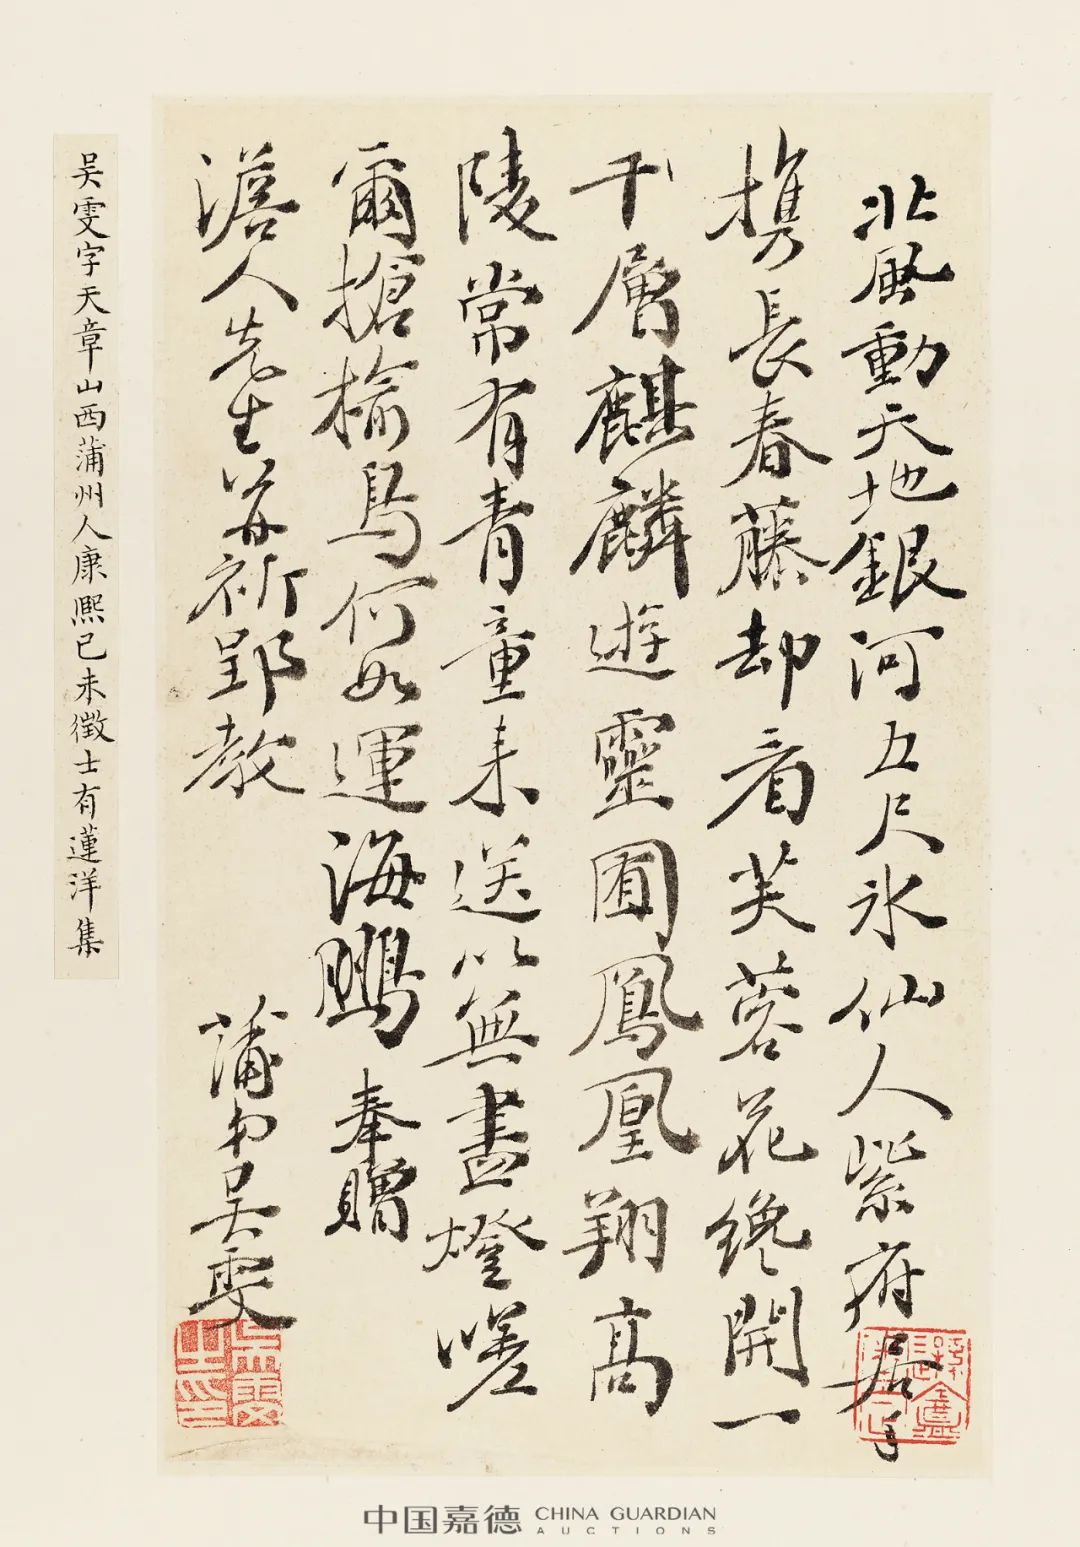 北風動天地銀河五尺冰仙人紫府居手
携長春藤却看芙蓉花纔開一
千層麒麟遊靈囿鳳凰翔高
陵常有青童来送以無盡燈嗟
爾搶榆鳥何如運海鵬 奉贈
澹人先生并祈郢教
蒲吴雯
吳雯之印
吴雯字天章山西蒲州人康熙己未徵士有蓮洋集
中国嘉德 CHINA GUARDIAN
AUCTIONS